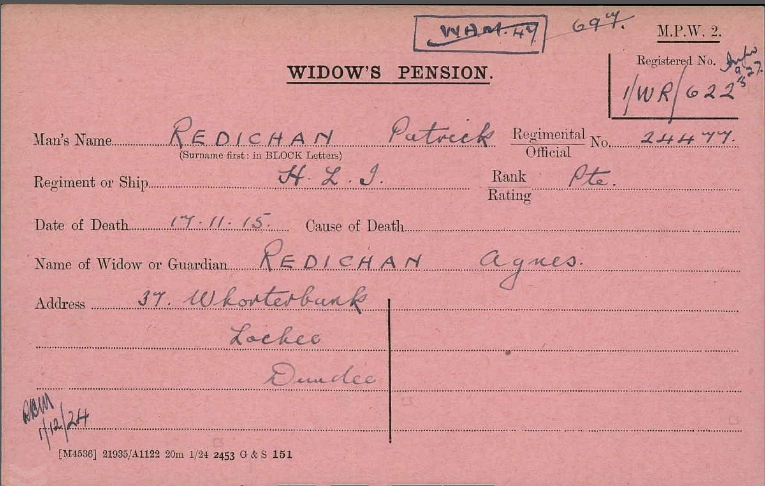 W.A.M. 47 697.
M.P.W. 2.
WIDOW'S PENSION.
Registered No.
1/WR/622
Man's Name REDICHAN Patrick Regimental Official No. 24477.
(Surname first: in BLOCK Letters)
Regiment or Ship H. L. I. Rank Rating Pte.
Date of Death 17.11.15. Cause of Death
Name of Widow or Guardian REDICHAN Agnes.
Address 37. Whorterbank
Lochee
Dundee
1/12/24
[M4536] 21935/A1122 20m 1/24 2453 G & S 151